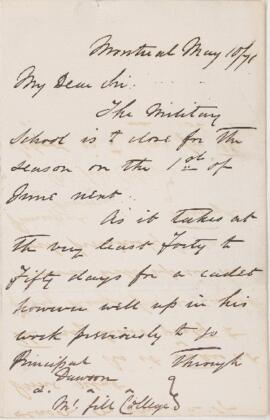 Montreal May 10/71
My Dear Sir.
The Military
School is to close for the
season on the 1st of
June next.
As it takes at
the very least Forty to
Fifty days for a cadet
however well up in his
work previously to go
Principal through
Dawson
McGill College